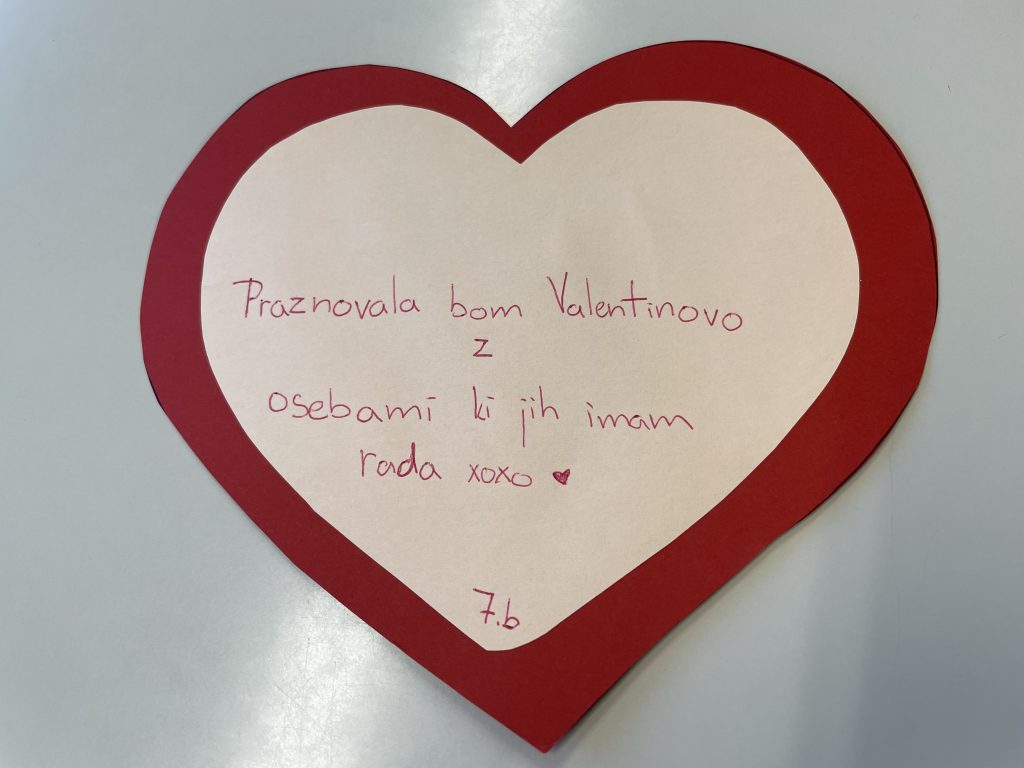 Praznovala bom Valentinovo
z
osebami ki jih imam
rada xoxo ♥
7.b